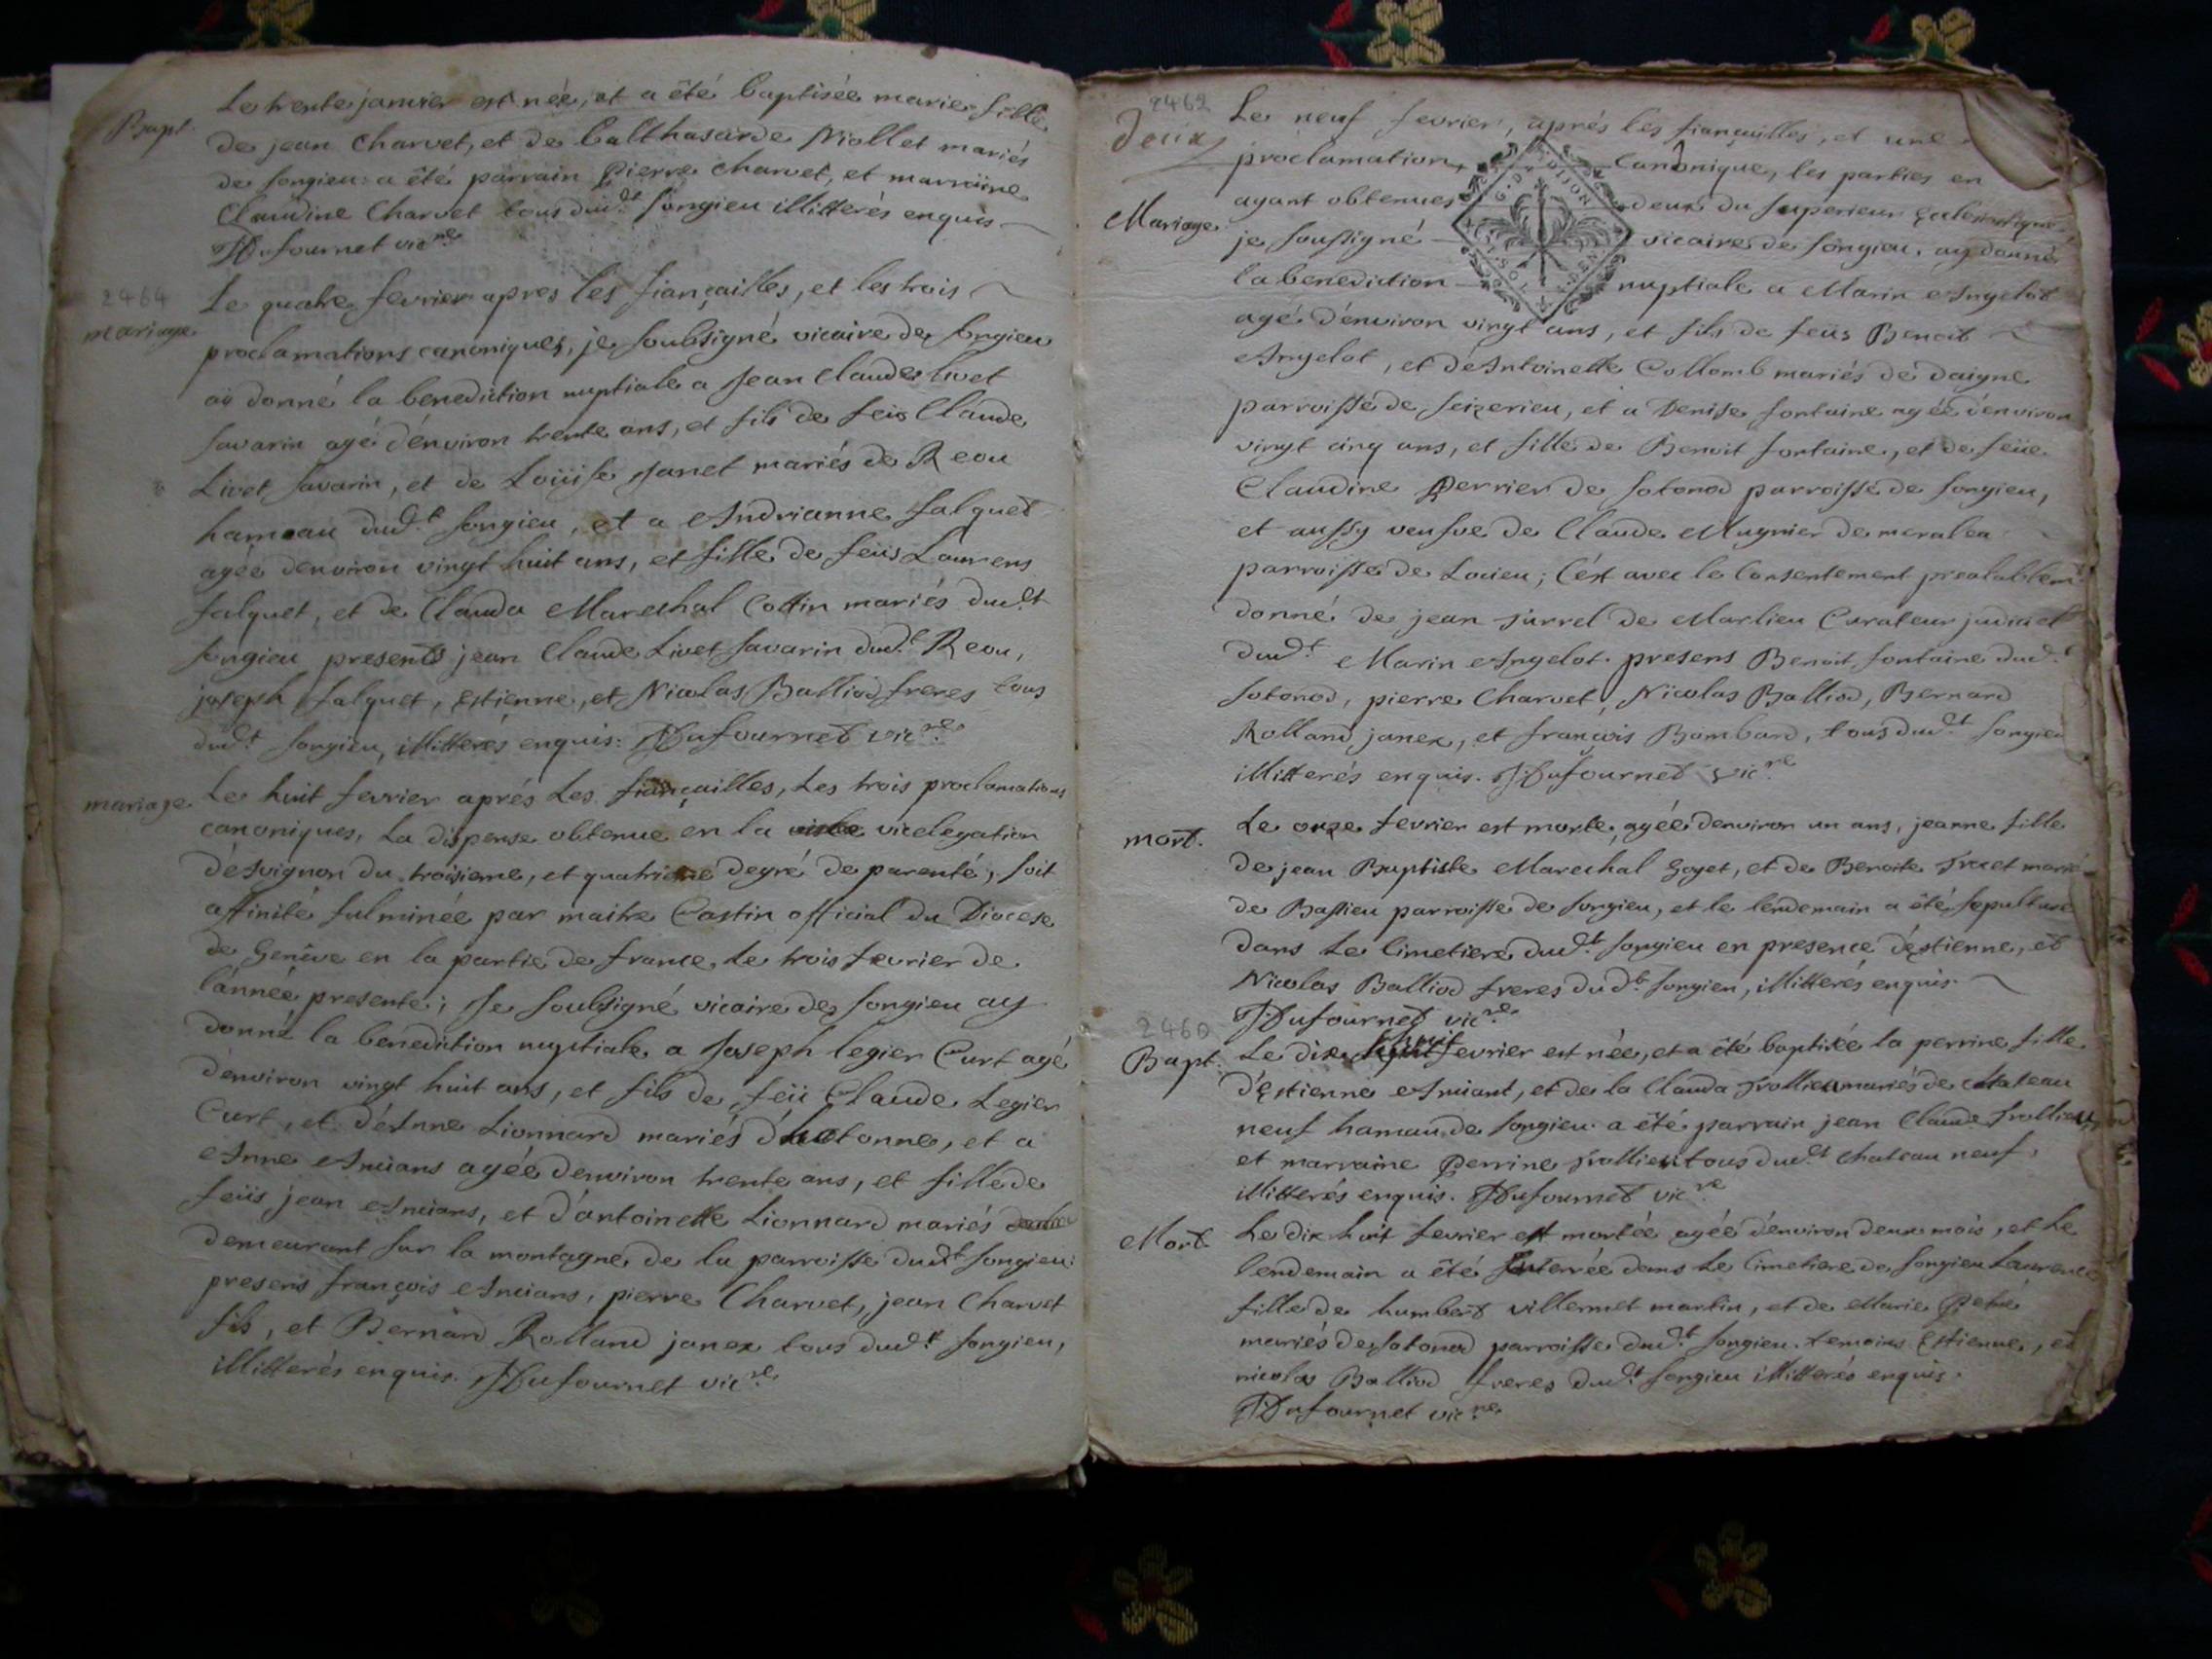 Bapt.
Le trente janvier est née, et a été baptisée marie fille
de jean Charvet, et de balthasarde Niollet mariés
de songieu: a été parrain pierre charvet, et marraine
Claudine Charvet tous dud.t songieu illitterés enquis
Dufournet vic.re
2464
mariage
Le quatre fevrier apres les fiançailles, et les trois
proclamations canoniques, je soubsigné vicaire de songieu
aÿ donné la benediction nuptiale a Jean claude livet
savarin agé d'énviron trente ans, et fils de feüs Claude
Livet savarin, et de Loüise Janet mariés de Reou
hameau dud.t songieu, et a Andrianne falquet
agée denviron vingt huit ans, et fille de feüs Laurens
falquet, et de Clauda Marechal Cottin mariés dud.t
songieu presents jean Claude Livet savarin dud.t Reou,
joseph falquet, Estienne, et Nicolas Balliod freres tous
dud.t songieu, illitterés enquis: Dufournet vic.re
mariage
Le huit fevrier aprés Les fiançailles, Les trois proclamations
canoniques, La dispense obtenue en la vicelegation
d'Avignon du troisieme, et quatrieme degré de parenté, soit
affinité fulminée par maitre Castin official du Diocese
de Genêve en la partie de france, le trois fevrier de
l'année presente; Je soubsigné vicaire de songieu aÿ
donné la benediction nuptiale a Joseph legier Curt agé
d'environ vingt huit ans, et fils de feü Claude Legier
Curt, et d'Anne Lionnard mariés d'hotonne, et a
Anne Ancians agée denviron trente ans, et fille de
feüs jean Ancians, et d'antoinette Lionnard mariés
demeurant sur la montagne de la parroisse dud.t songieu:
presens françois Ancians, pierre Charvet, jean Charvet
fils, et Bernard Rolland janex tous dud.t songieu,
illitterés enquis. Dufournet vic.re
2462
Deux
Le neuf fevrier, aprés les fiançailles, et une
proclamation, Canonique, les parties en
G. DE DIJON
ayant obtenues deux du superieur
Mariage
je soussigné vicaire de songieu, aÿ donné
la benediction nuptiale a Marin Angelot
agé d'énviron vingt ans, et fils de feüs Benoit
Angelot, et d'Antoinette Collomb mariés de daigne
parroisse de seizerieu, et a Denise fontaine agée d'énviron
vingt cinq ans, et fille de Benoit fontaine, et de feüe
Claudine perrier de sotonod parroisse de songieu,
et aussy veufve de Claude Mugnier de
parroisse de Locieu; C'est avec le Consentement prealablem.t
donné de jean jurrel de Marlieu Curateur judiciel
dud.t Marin Angelot. presens Benoit fontaine dud.t
sotonod, pierre Charvet, Nicolas Balliod, Bernard
Rolland janex, et françois Bombard, tous dud.t songieu
illitterés enquis. Dufournet vic.re
mort.
Le onze fevrier est morte, agée denviron un ans, jeanne fille
de jean Baptiste Marechal Goyet, et de Benoite
de Bassieu parroisse de songieu, et le lendemain a été sepulturé
dans Le Cimetiere dud.t songieu en presence d'Estienne, et
Nicolas Balliod freres dud.t songieu, illitterés enquis.
Dufournet vic.re
2460
Bapt.
Le dix huit fevrier est née, et a été baptisée la perrine fille
d'Estienne Anciant, et de la Clauda trollieu mariés de chateau
neuf hamau de songieu. a été parrain jean Claude trollieu
et marraine perrine trollieu tous dud.t Chateau neuf,
illitterés enquis. Dufournet vic.re
Mort.
Le dix huit fevrier est mortée agée d'énviron deux mois, et Le
lendemain a été enterrée dans Le Cimetiere de songieu Laurence
fille de humbert villermet martin, et de Marie
mariés de sotonod parroisse dud.t songieu. temoins Estienne, et
nicolas Balliod freres dud.t songieu illitterés enquis.
Dufournet vic.re